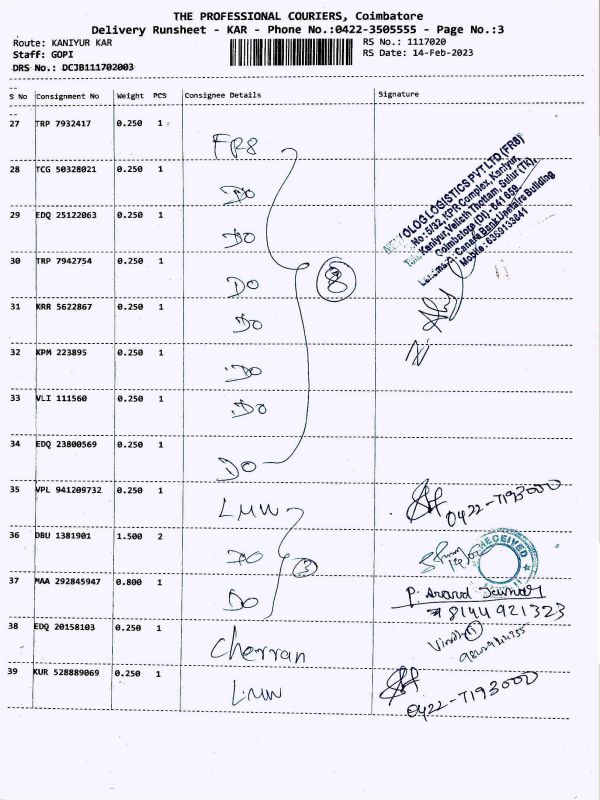 THE PROFESSIONAL COURIERS, Coimbatore
Delivery Runsheet - KAR - Phone No.:0422-3505555 - Page No.:3
Route: KANIYUR KAR
RS No.: 1117020
Staff: GOPI
RS Date: 14-Feb-2023
DRS No.: DCJB111702003
S No Consignment No Weight PCS Consignee Details Signature
27 TRP 7932417 0.250 1 FR8
28 TCG 50328021 0.250 1 DO
29 EDQ 25122063 0.250 1 DO
30 TRP 7942754 0.250 1 DO
8
31 KRR 5622867 0.250 1 DO
32 KPM 223895 0.250 1 DO
33 VLI 111560 0.250 1 DO
34 EDQ 23800569 0.250 1 DO
OLOG LOGISTICS PVT LTD (FR8)
No: 5/32, KPR Complex, Kaniyur,
Kaniyur, Velleth Thottam, Sulur (TK),
Coimbatore (Dt) - 641 659
Canara Bank Upstairs Building
Mobile : 6369133641
35 VPL 941209732 0.250 1 LMW 0422-7193000
36 DBU 1381901 1.500 2 DO
3
RECEIVED
37 MAA 292845947 0.800 1 DO
P. Anand
8144921323
38 EDQ 20158103 0.250 1 Cherran
39 KUR 528889069 0.250 1 LMW 0422-7193000